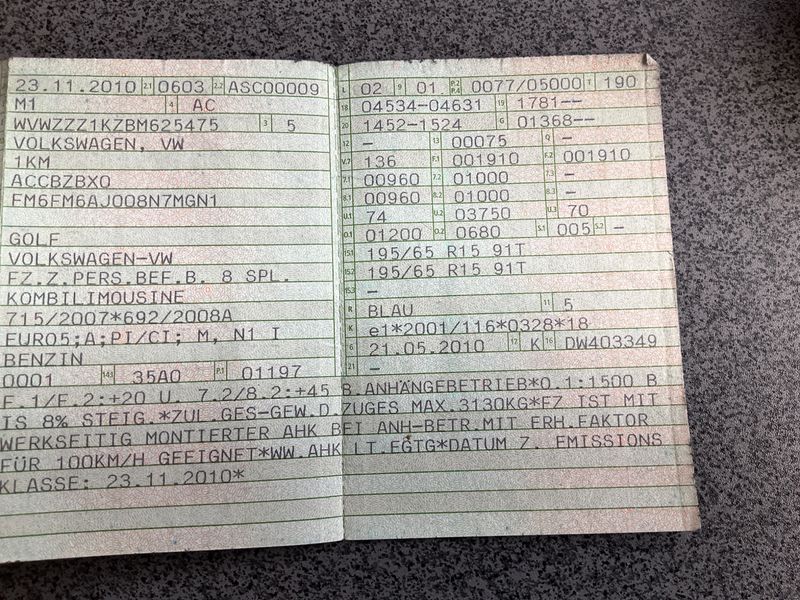 23.11.2010 2.1 0603 2.2 ASC00009
M1 4 AC
WVWZZZ1KZBM625475 3 5
VOLKSWAGEN, VW
1KM
ACCBZBX0
FM6FM6AJ008N7MGN1
GOLF
VOLKSWAGEN-VW
FZ.Z.PERS.BEF.B. 8 SPL.
KOMBILIMOUSINE
715/2007*692/2008A
EURO5;A;PI/CI; M, N1 I
BENZIN
0001 14.1 35A0 P.1 01197
L 02 9 01 P.2 P.4 0077/05000 T 190
18 04534-04631 19 1781--
20 1452-1524 G 01368--
12 - 13 00075 Q -
V.7 136 F.1 001910 F.2 001910
7.1 00960 7.2 01000 7.3 -
8.1 00960 8.2 01000 8.3 -
U.1 74 U.2 03750 U.3 70
O.1 01200 O.2 0680 S.1 005 S.2 -
15.1 195/65 R15 91T
15.2 195/65 R15 91T
15.3 -
R BLAU 11 5
K e1*2001/116*0328*18
6 21.05.2010 17 K 16 DW403349
21 -
F.1/F.2:+20 U. 7.2/8.2:+45 B.ANHÄNGEBETRIEB*O.1:1500 B
IS 8% STEIG.*ZUL.GES-GEW.D.ZUGES MAX.3130KG*FZ IST MIT
WERKSEITIG MONTIERTER AHK BEI ANH-BETR.MIT ERH.FAKTOR
FÜR 100KM/H GEEIGNET*WW.AHK LT.EGTG*DATUM Z. EMISSIONS
KLASSE: 23.11.2010*